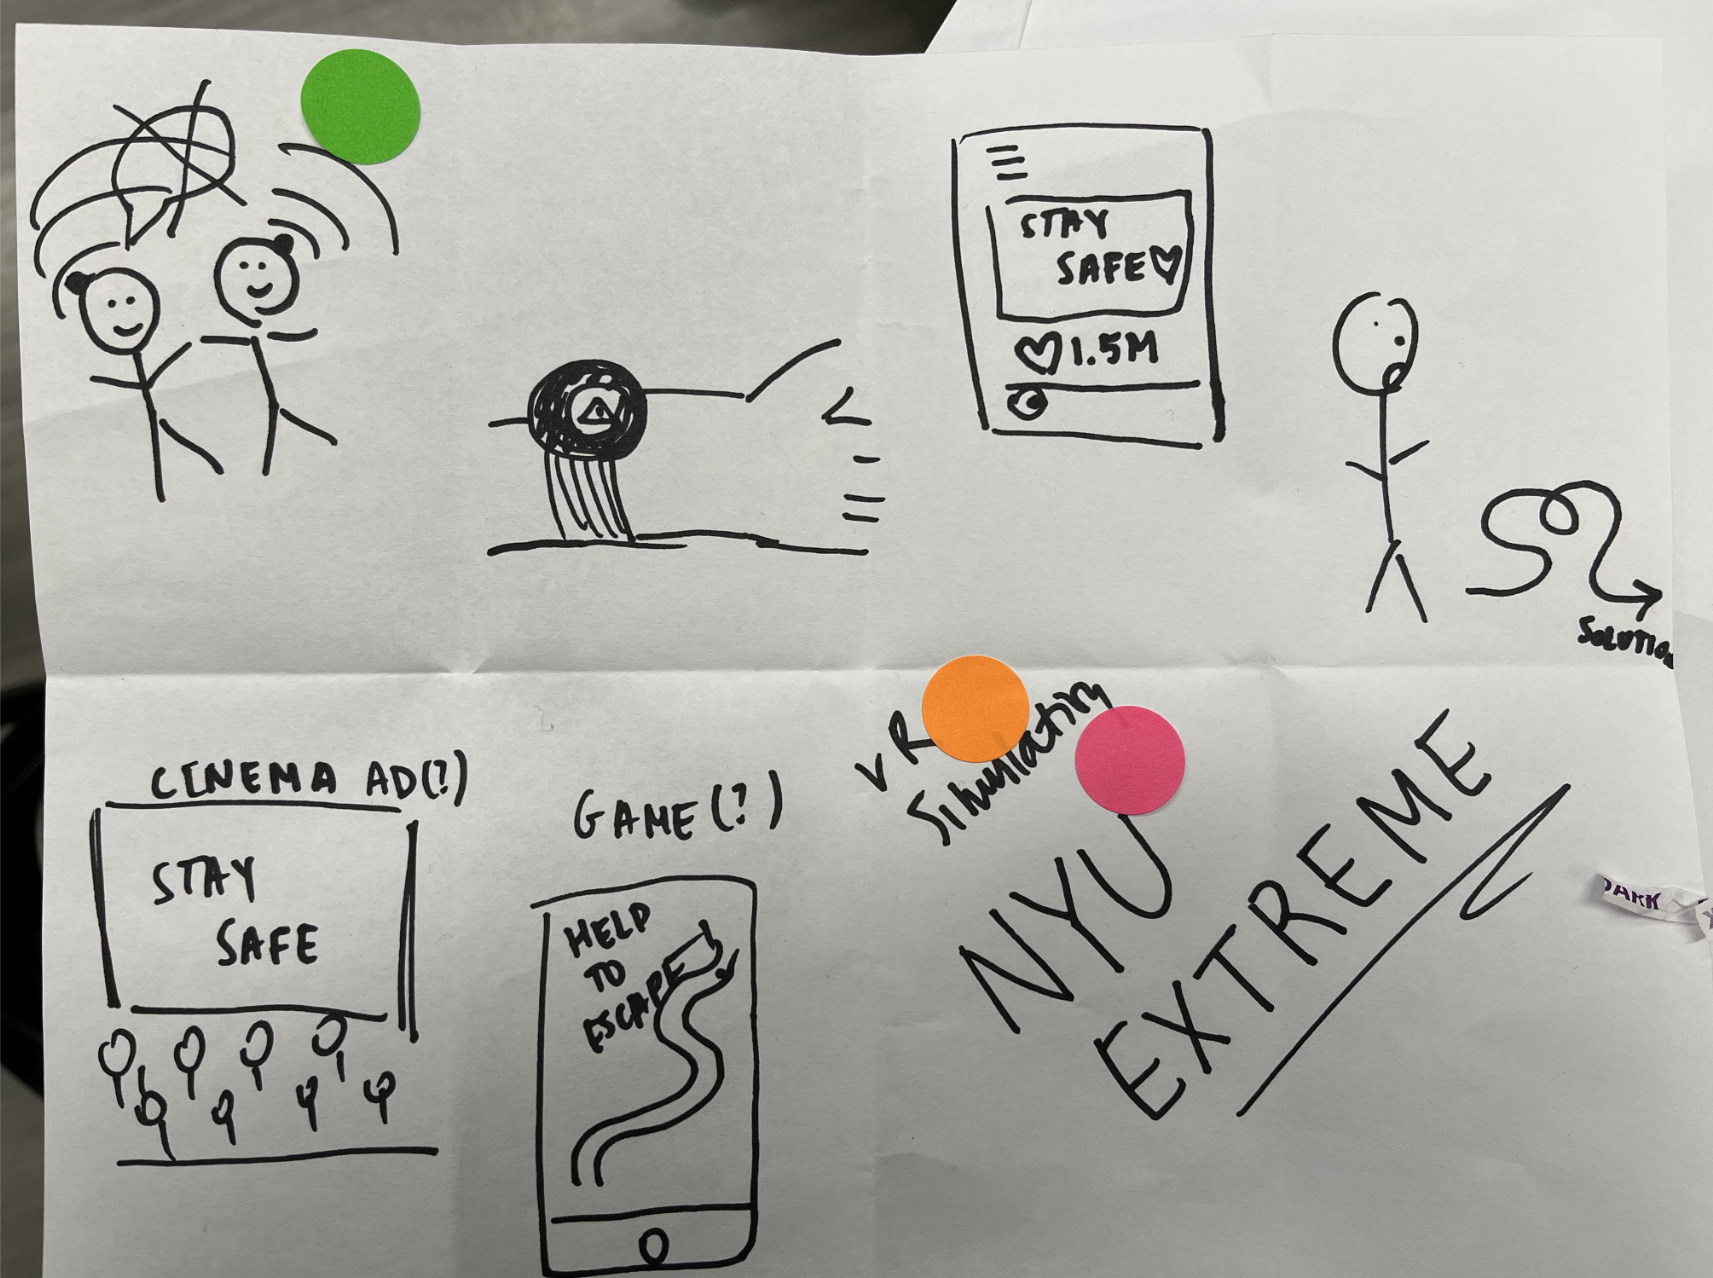 STAY
SAFE♡
♡1.5M
SOLUTION
CINEMA AD(?)
STAY
SAFE
GAME(?)
HELP
TO
ESCAPE
VR
Simulation
NYU
EXTREME
DARK